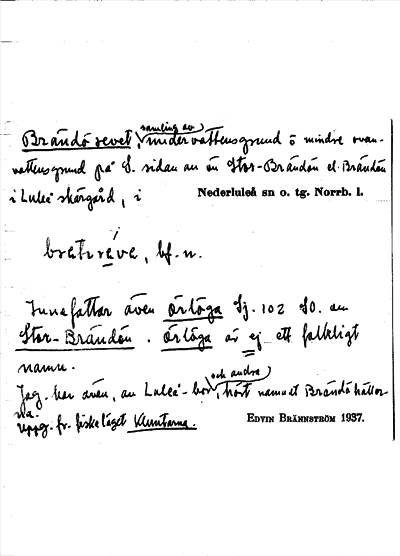 Brändö revet, samling av undervattensgrund o mindre ovan-
vattensgrund på S. sidan av ön Stor-Brändön el. Brändön
i Luleå skärgård, i Nederluleå sn o. tg. Norrb. l.
bf. n.
Innefattar även Örlöga Sj. 102 SO. om
Stor-Brändön. Örlöga är ej ett folkligt
namn.
Jag har även, av Luleå-bor och andra, hört namnet Brändöhällor-
na.
Uppg. fr. fiskeläget Kluntarna.
EDVIN BRÄNNSTRÖM 1937.